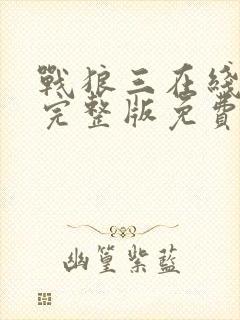 戰狼三在綫
完整版免費
幽篁紫藍